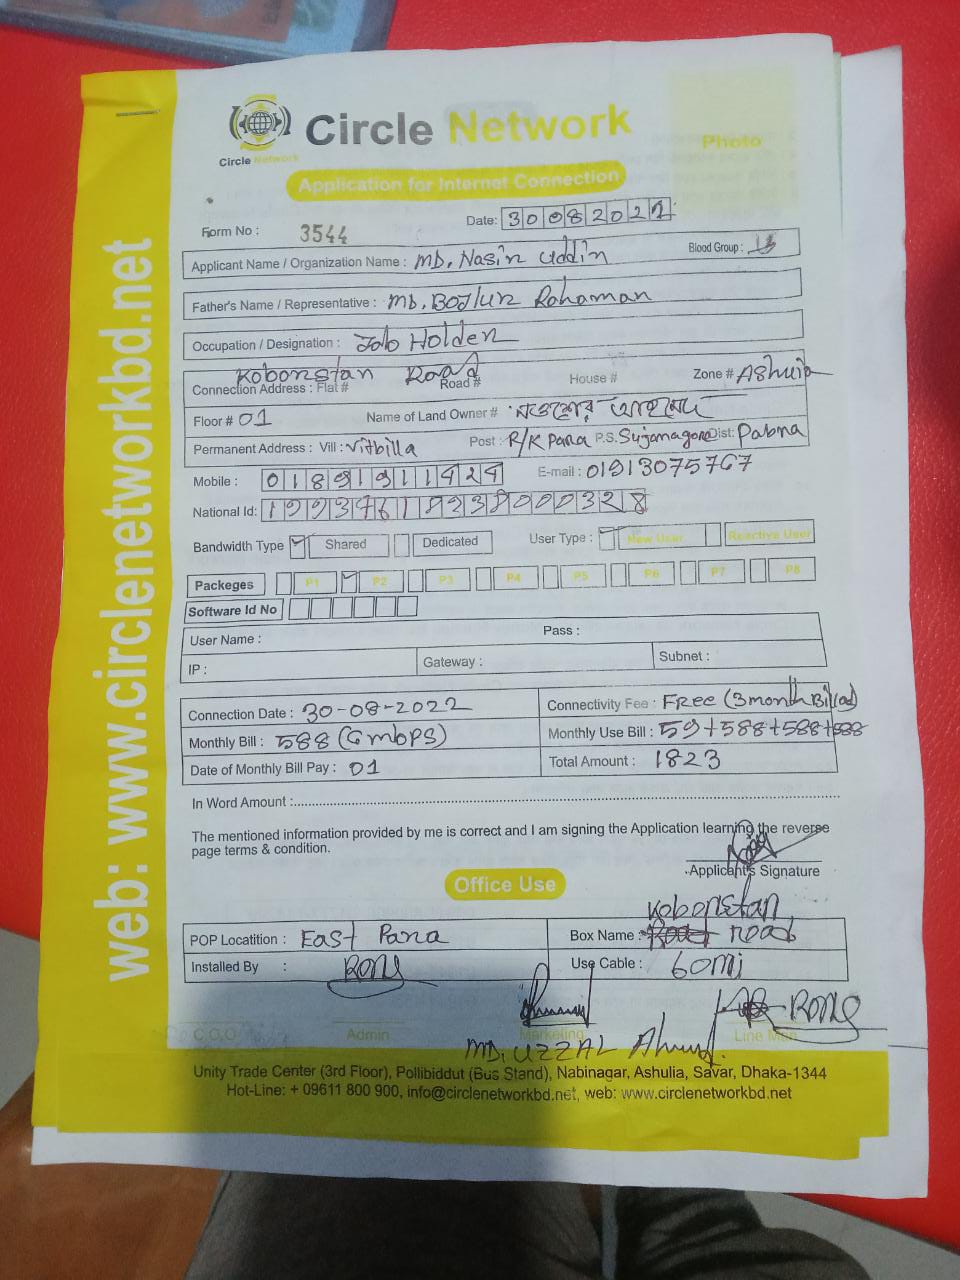 Circle Network
Circle Network
Photo
Application for Internet Connection
Date: 30082022
Form No : 3544
Applicant Name / Organization Name : MD. Nasir Uddin Blood Group :
Father's Name / Representative : MD. Bozlur Rohaman
Occupation / Designation : Job Holder
Kobonstan Road
Connection Address : Flat # Road # House # Zone # Ashulia
Floor # 01 Name of Land Owner #
Permanent Address : Vill : Vitbilla Post : R/K Para P.S. Sujanagar Dist: Pabna
Mobile : 01891911424 E-mail : 01913075767
National Id: 19937618238000328
Bandwidth Type Shared Dedicated User Type : New User Reactive User
Packeges P1 P2 P3 P4 P5 P6 P7 P8
Software Id No
User Name : Pass :
IP : Gateway : Subnet :
Connection Date : 30-08-2022 Connectivity Fee : FREE (3month Bill ad)
Monthly Bill : 588 (6mbps) Monthly Use Bill : 59+588+588+588
Date of Monthly Bill Pay : 01 Total Amount : 1823
In Word Amount :
The mentioned information provided by me is correct and I am signing the Application learning the reverse
page terms & condition.
Applicant's Signature
Office Use
Kobonstan
POP Locatition : East Para Box Name : Road
Installed By : RONY Use Cable : 60mi
RONY
C.O.O Admin Marketing Line Man
MD. UZZAL Ahmed
Unity Trade Center (3rd Floor), Pollibiddut (Bus Stand), Nabinagar, Ashulia, Savar, Dhaka-1344
Hot-Line: + 09611 800 900, info@circlenetworkbd.net, web: www.circlenetworkbd.net
web: www.circlenetworkbd.net